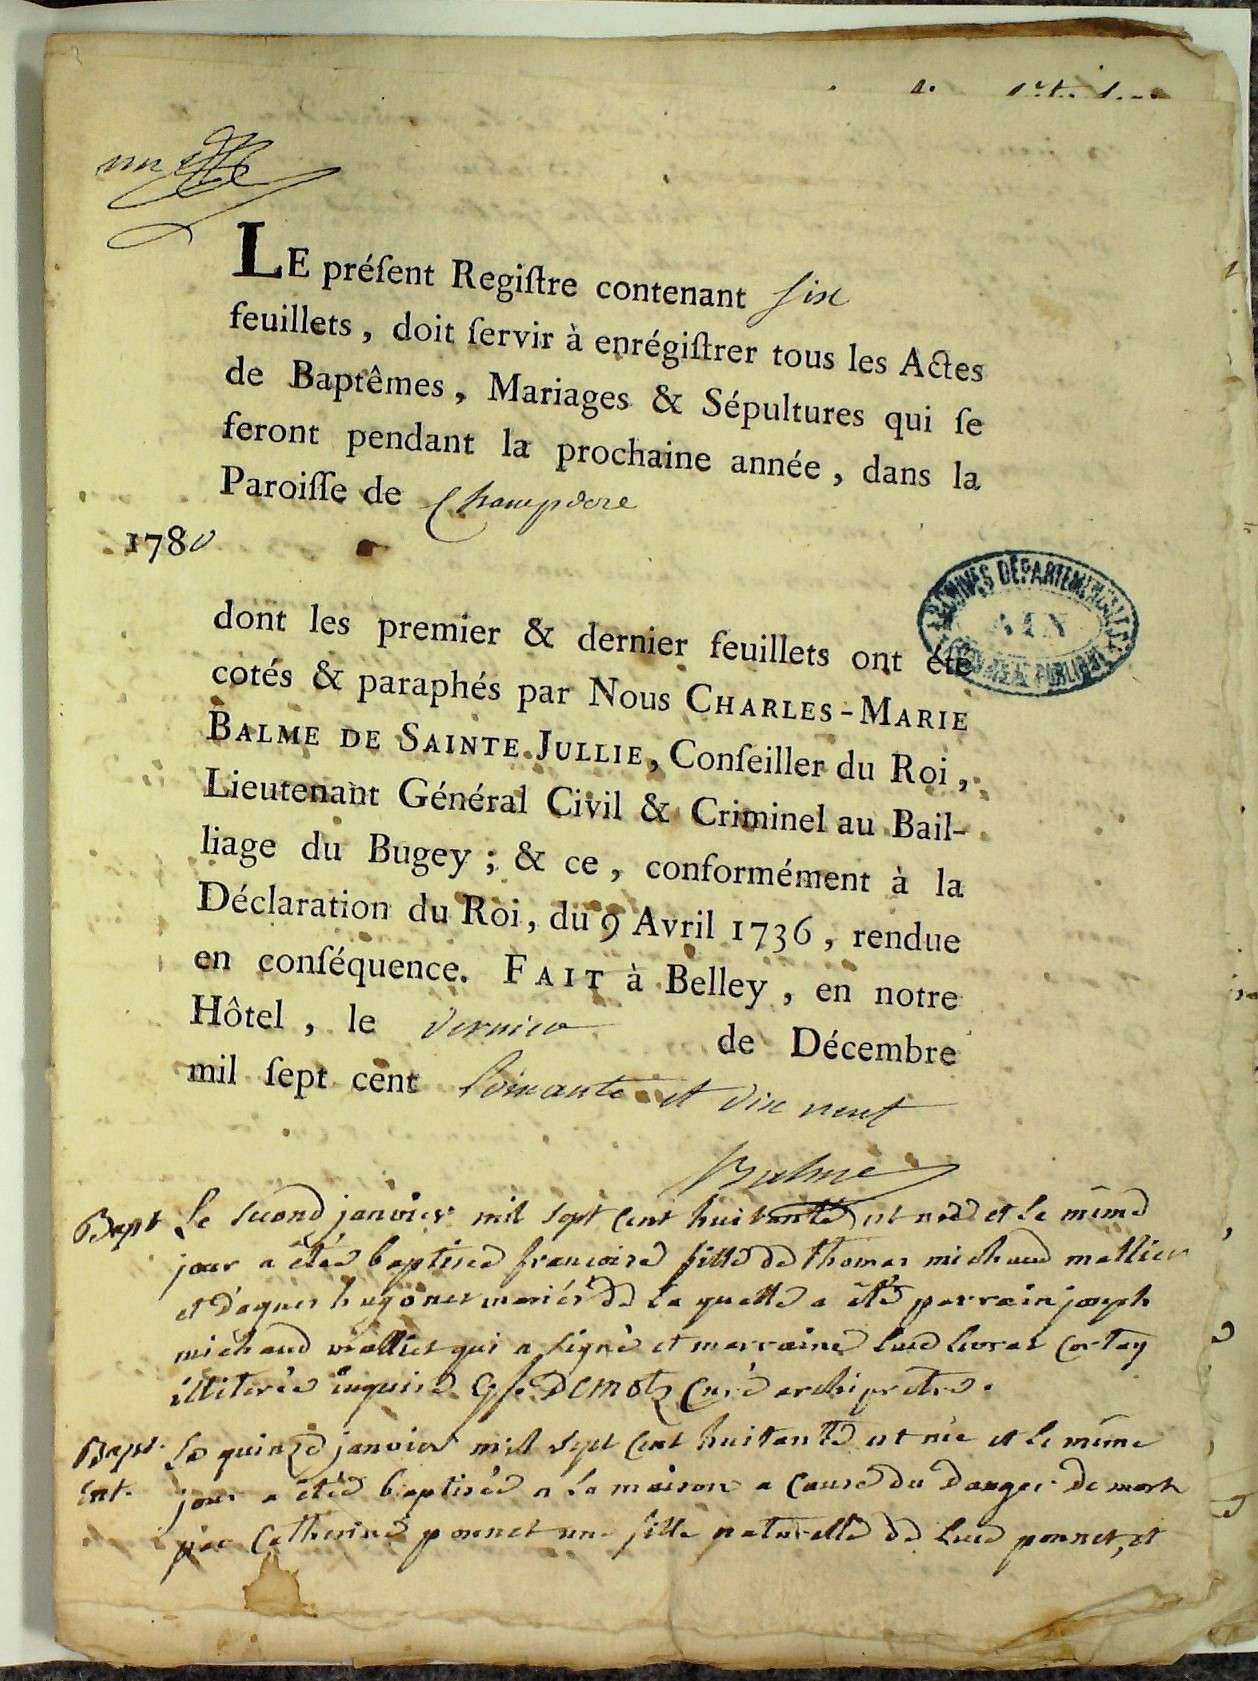 LE préſent Regiſtre contenant six
feuillets, doit ſervir à enrégiſtrer tous les Actes
de Baptêmes, Mariages & Sépultures qui ſe
feront pendant la prochaine année, dans la
Paroiſſe de Champdore
1780
ARCHIVES DÉPARTEMENTALES
AIN
dont les premier & dernier feuillets ont été
cotés & paraphés par Nous CHARLES-MARIE
BALME DE SAINTE JULLIE, Conſeiller du Roi,
Lieutenant Général Civil & Criminel au Bail-
liage du Bugey ; & ce, conformément à la
Déclaration du Roi, du 9 Avril 1736, rendue
en conſéquence. FAIT à Belley, en notre
Hôtel, le dernier de Décembre
mil ſept cent soixante et dix neuf
Balme
Bapt Le second janvier mil sept cent huitante est née et le même
jour a été baptisée francoise fille de thomas michaud
et d'agnes hugonet mariés de laquelle a été parrain joseph
michaud qui a signé et marraine
illiterée enquise DEMOTZ curé archiprêtre.
Bapt. Le quinze janvier mil sept cent huitante est née et le même
Ent. jour a été baptisée a la maison a cause du danger de mort
par Catherine ponnet une fille naturelle de ponnet, et